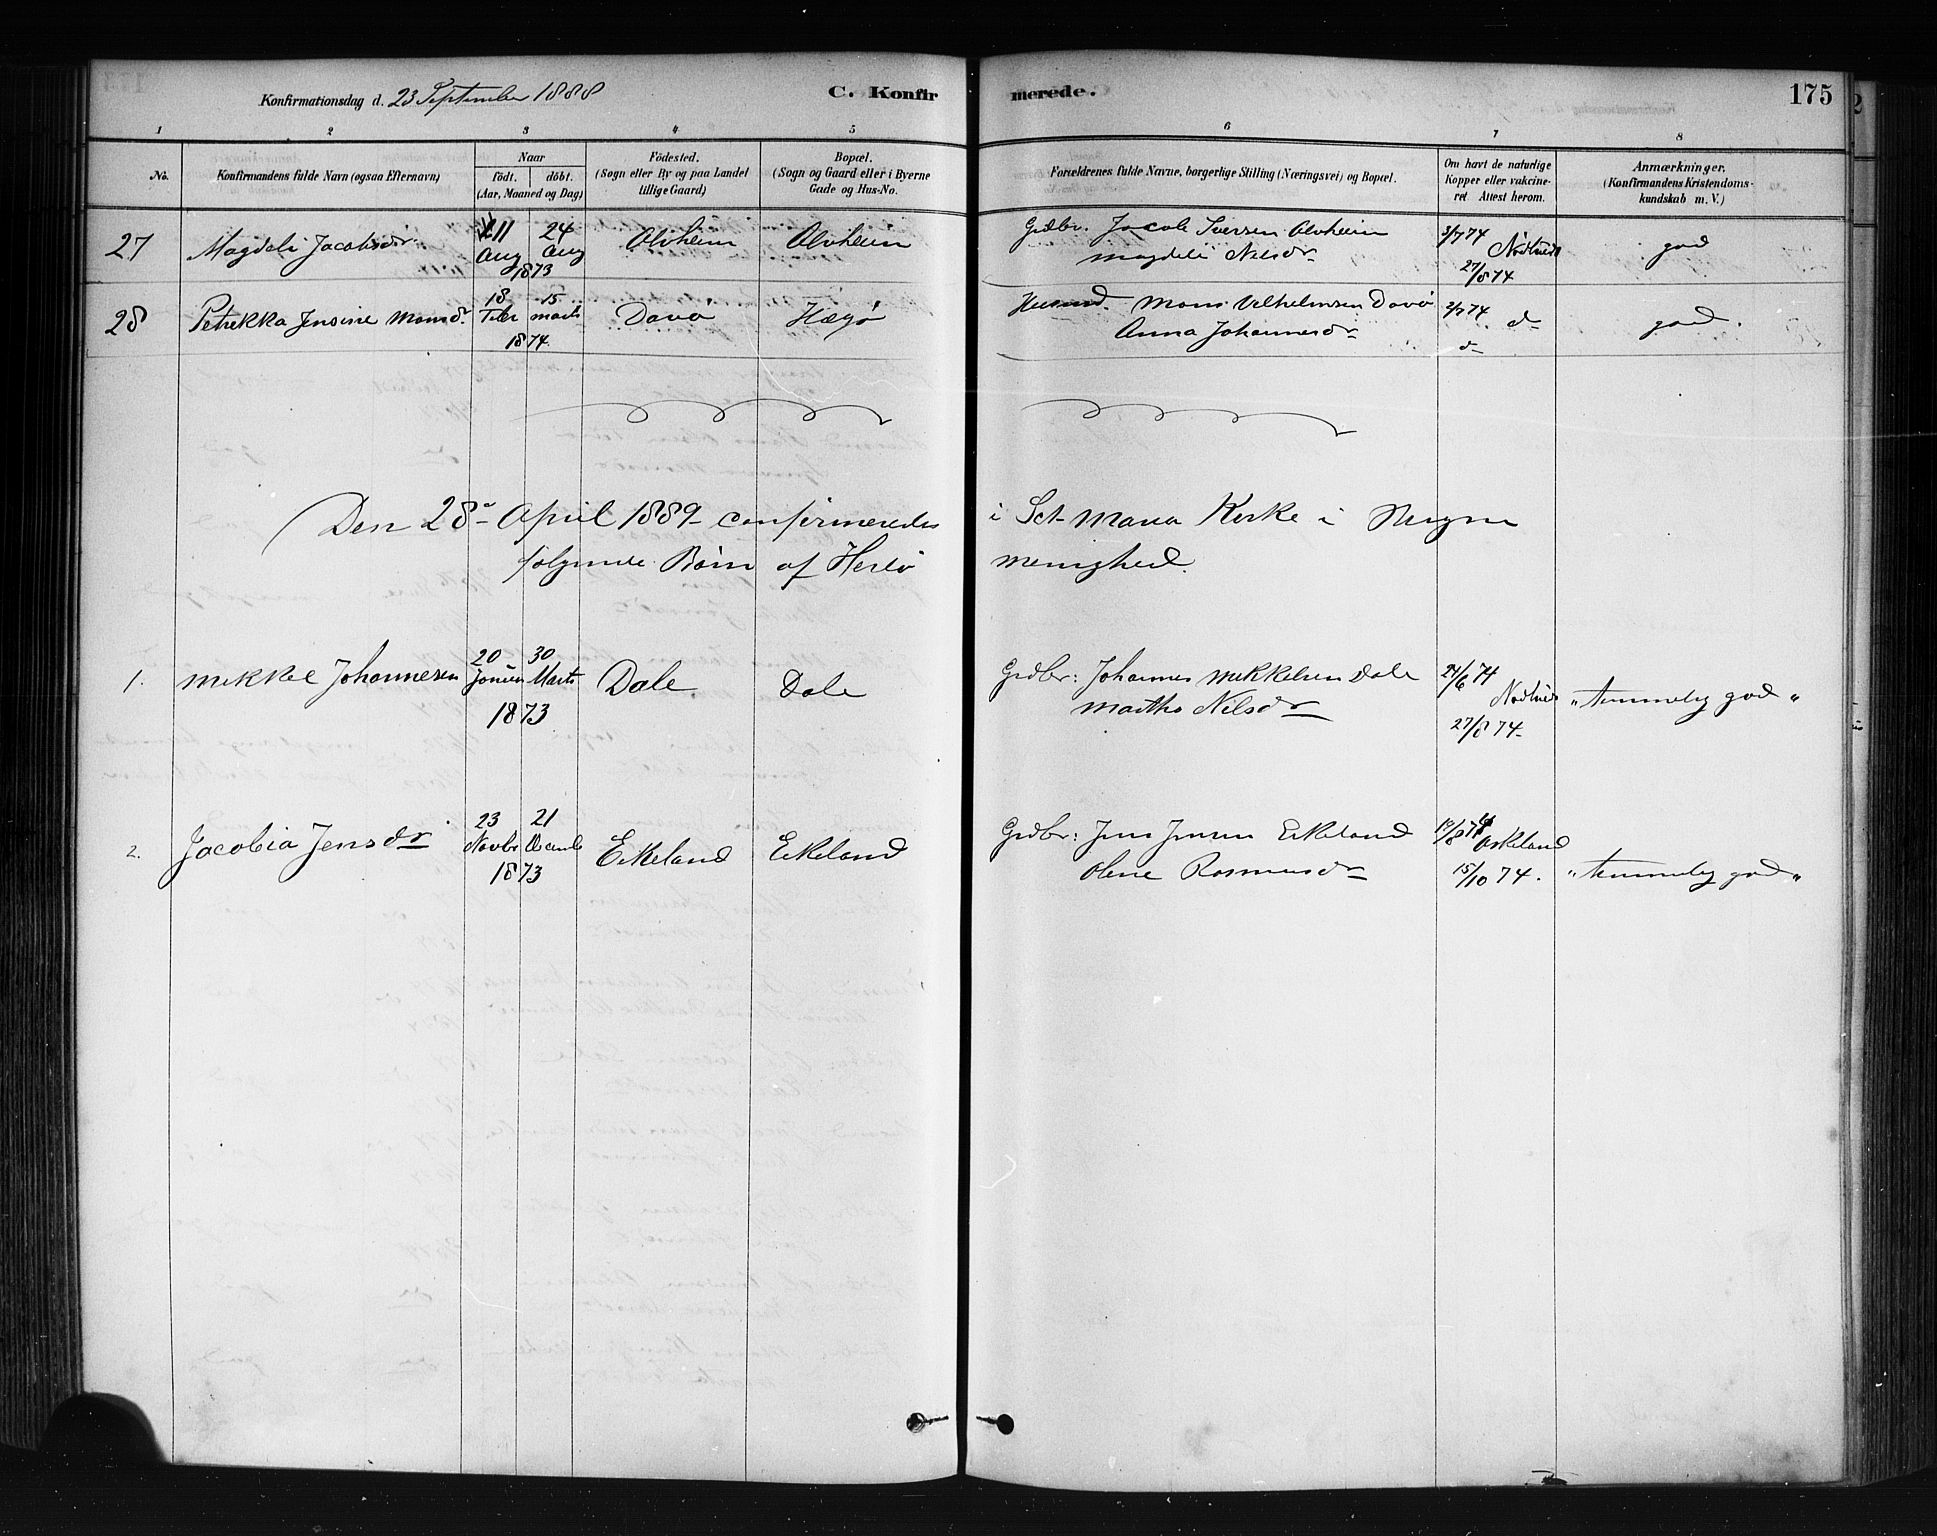 Konfirmationsdag d. 23 September 1888 C. Konfirmerede. 175
1 2 3 4 5 6 7 8
No.
Konfirmandens fulde Navn (ogsaa Efternavn)
Naar
Födt. döbt.
(Aar, Maaned og Dag)
Födested.
(Sogn eller By og paa Landet
tillige Gaard)
Bopæl.
(Sogn og Gaard eller i Byerne
Gade og Hus-No.
Forældrenes fulde Navne, borgerlige Stilling (Næringsvei) og Bopæl.
Om havt de naturlige
Kopper eller vakcine-
ret Attest herom.
Anmærkninger.
(Konfirmandens Kristendoms-
kundskab m. V.)
27 Magdeli Jacobsdr 11 Aug 24 Aug 1873 Alvheim Alvheim
Grdbr. Jacob Iversen Alvheim
Magdeli Nilsdr
3/7 74
27/8 74
god
28 Petrikka Jensine Monsdr 18 Febr 15 Marts 1874 Davø Hægø
Husmd. Mons Vilhelmsen Davø
Anna Johannesdr
2/7 74 d-
d-
god.
Den 28de April 1889 confirmeredes i Sct Maria Kirke i
følgende Børn af Herlø menighed.
1. Mikkel Johannesen 20 30 Marts 1873 Dale Dale
Grdbr: Johannes Mikkelsen Dale
Martha Nilsdr
24/6 74
27/8 74
"temmelig god"
2. Jacobia Jensdr 23 Novbr 21 Decemb 1873 Eikeland Eikeland
Grdbr: Jens Jensen Eikeland
Olene Rasmusdr
19/8 74 Askeland
15/10 74.
"temmelig god"